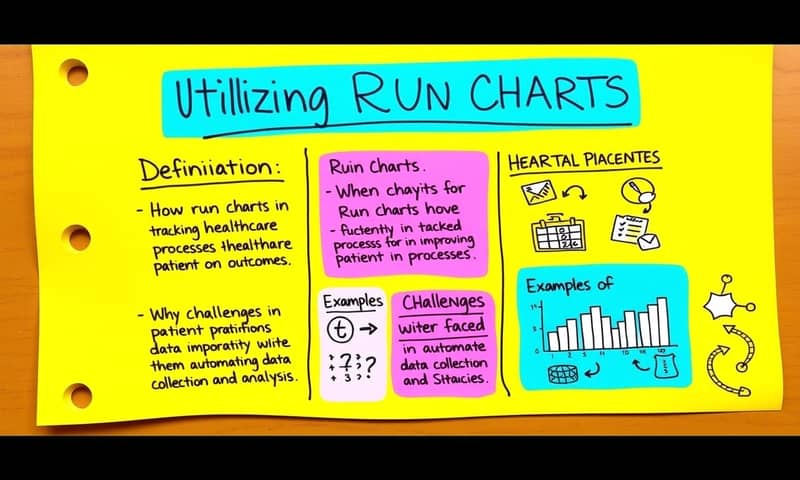 Utillizing RUN CHARTS
Definiiation:
- How run charts in
tracking healthcare
processes thealthare
patient on outcomes.
- Why challenges in
patient pratifnons
data imporatity wlite
them automating data
collection and analysis.
Ruin Charts.
- When chayits for
Run charts hove
- fuctently in tacked
processs for in improving
patient in processes.
Examples
t
? ?
3
CHallenges
witer faced
in automate
data collection
and Sitaicies.
HEARTAL PIACENTES
Examples of